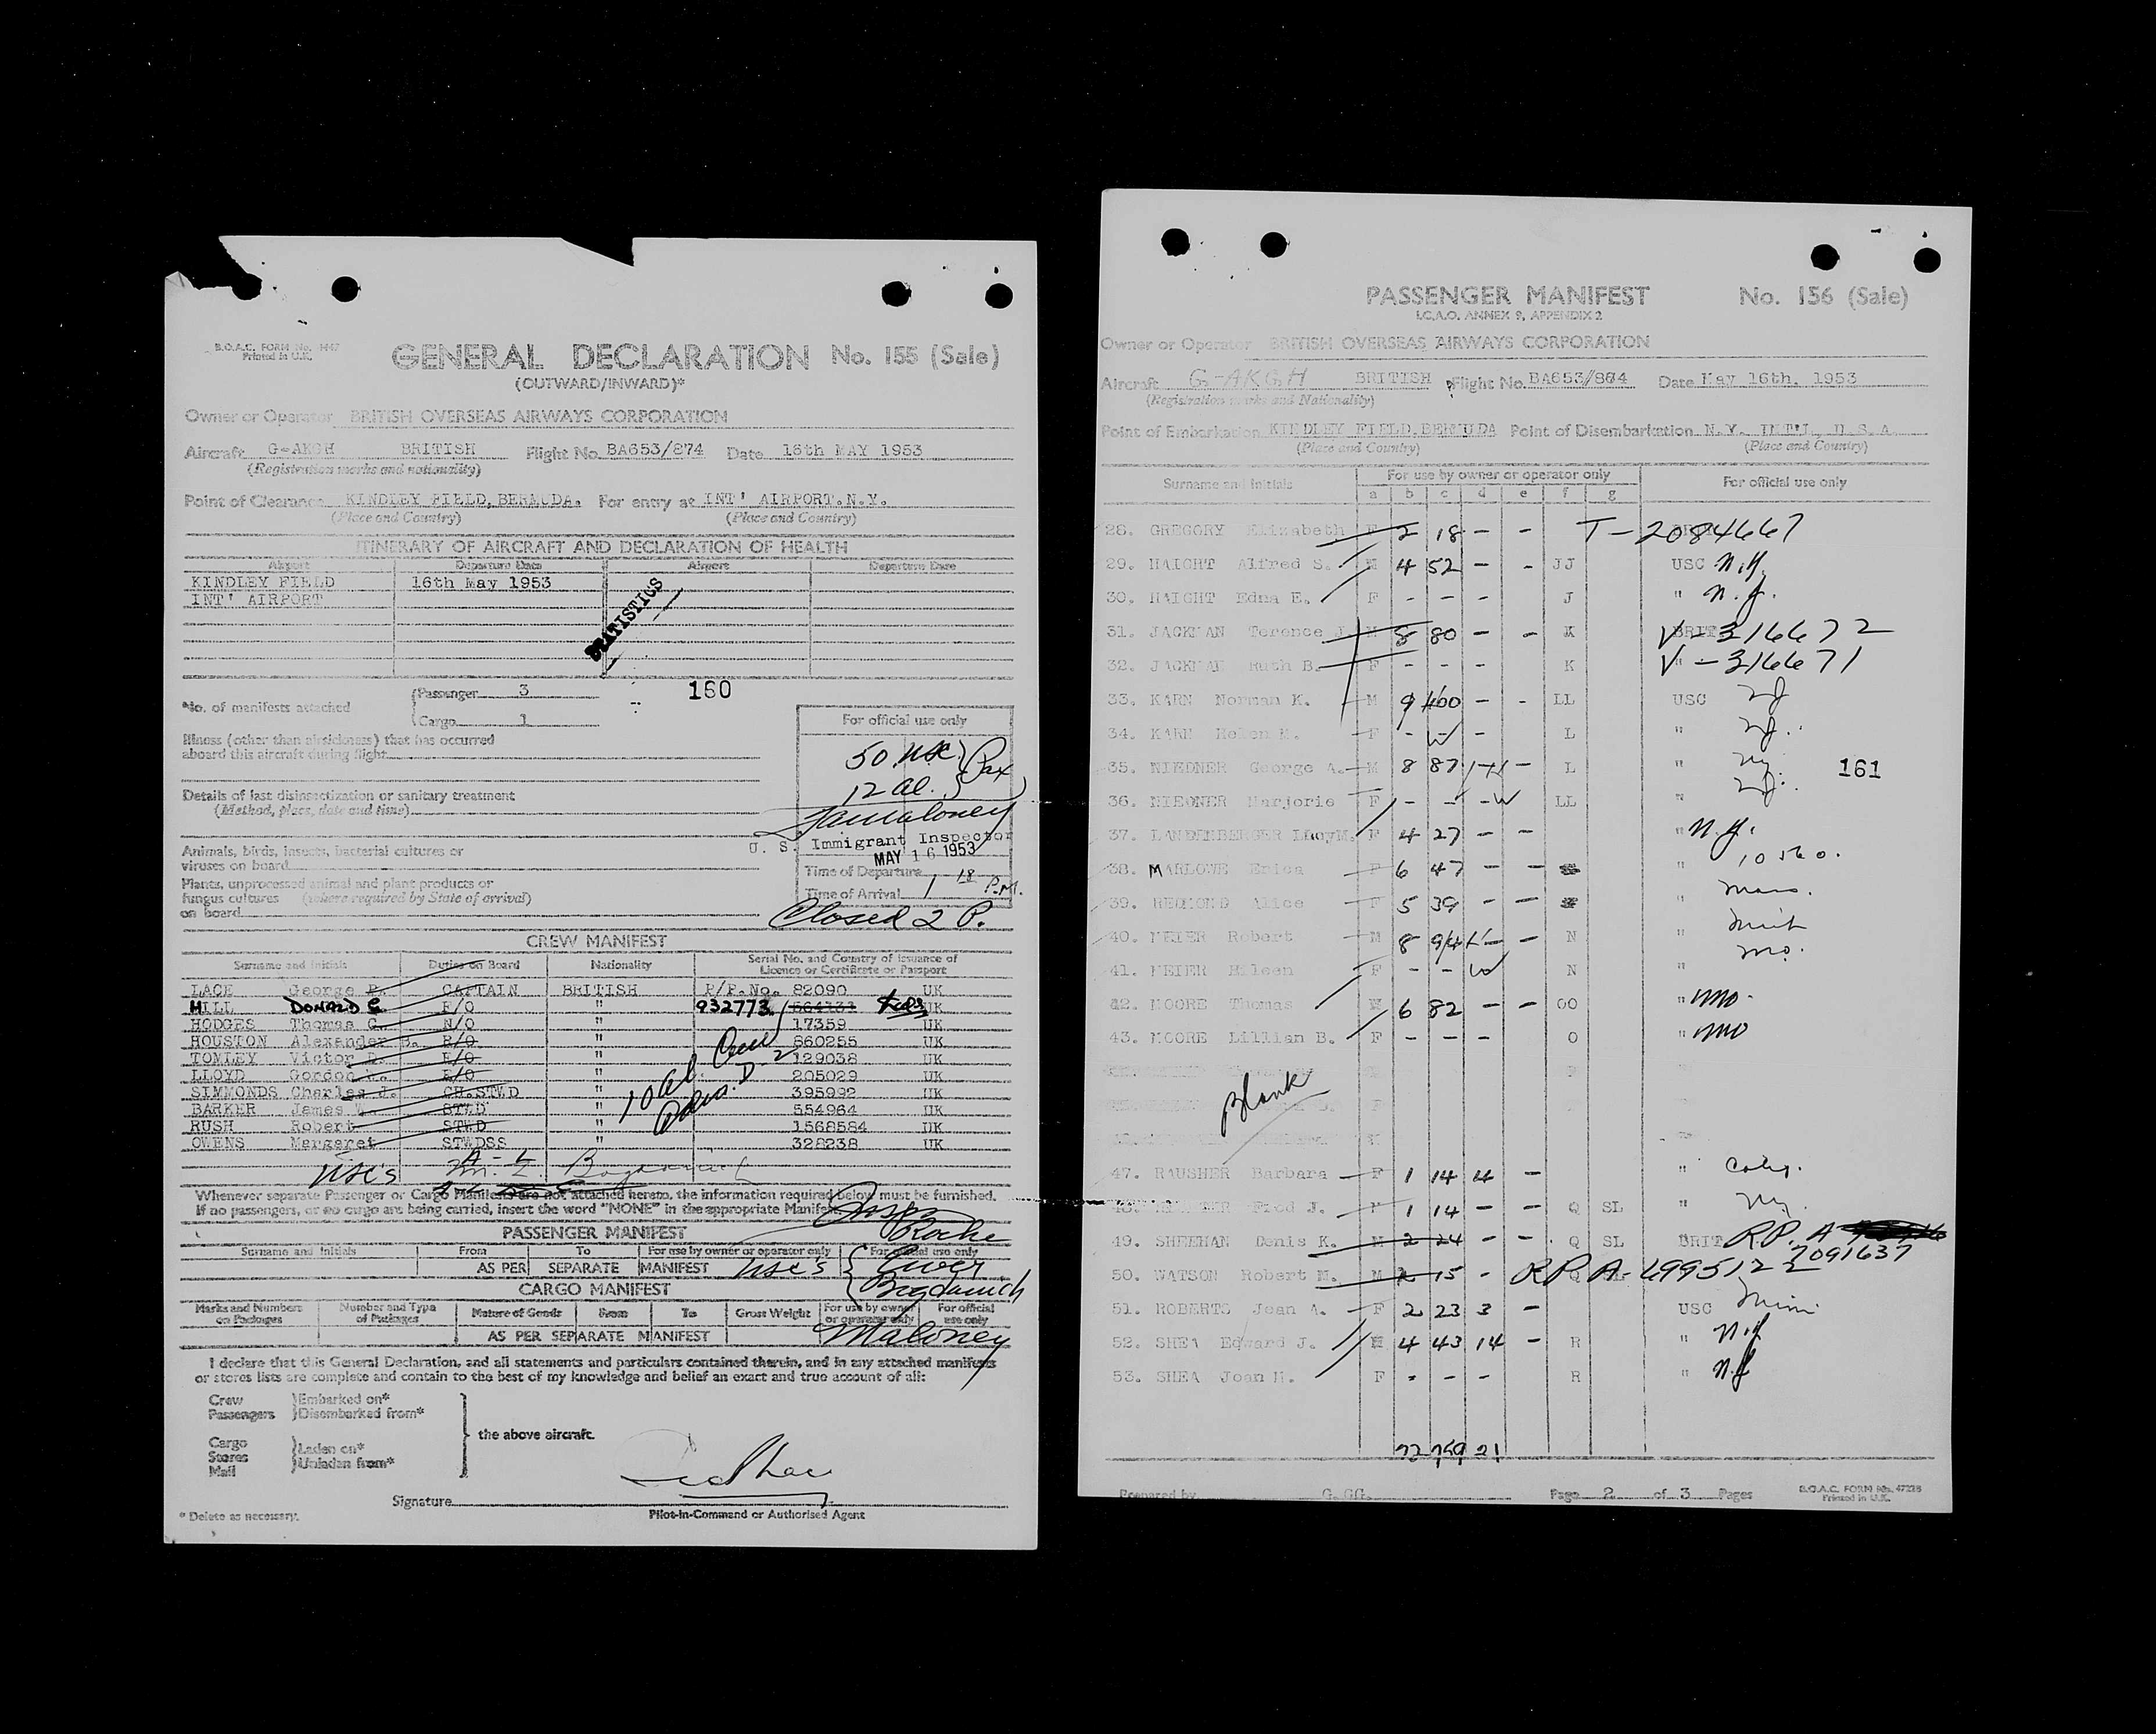 B.O.A.C. FORM No. 1447
Printed in U.K.
GENERAL DECLARATION No. 155 (Sale)
(OUTWARD/INWARD)*
Owner or Operator BRITISH OVERSEAS AIRWAYS CORPORATION
Aircraft G-AKGH BRITISH Flight No. BA653/874 Date 16th MAY 1953
(Registration marks and nationality)
Point of Clearance KINDLEY FIELD, BERMUDA. For entry at INT' AIRPORT. N.Y.
(Place and Country) (Place and Country)
ITINERARY OF AIRCRAFT AND DECLARATION OF HEALTH
Airport Departure Date Airport Departure Date
KINDLEY FIELD 16th May 1953
INT' AIRPORT
*No. of manifests attached
Passenger 3
Cargo 1
160
Illness (other than airsickness) that has occurred
aboard this aircraft during flight
Details of last disinsectization or sanitary treatment
(Method, place, date and time)
Animals, birds, insects, bacterial cultures or
viruses on board
Plants, unprocessed animal and plant products or
fungus cultures (where required by State of arrival)
on board
For official use only
50 USC
12 al. Pax
Maloney
U. S. Immigrant Inspector
MAY 16 1953
Time of Departure
Time of Arrival 1 18 P.M.
Closed 2 P.
CREW MANIFEST
Surname and Initials Duties on Board Nationality Serial No. and Country of Issuance of
Licence or Certificate or Passport
LACE George CAPTAIN BRITISH P/P. No. 82090 UK
HILL DONALD G F/O " 932773 UK
HODGES Thomas G. N/O " 17359 UK
HOUSTON Alexander B. R/O " 860255 UK
TOMLEY Victor E/O " 129038 UK
LLOYD Gordon E/O " 205029 UK
SIMMONDS Charles J. CH.STWD " 395992 UK
BARKER James STWD " 554964 UK
RUSH Robert STWD " 1568584 UK
OWENS Margaret STWDSS " 328238 UK
10 al. Crew
D-2
USC's
Whenever separate Passenger or Cargo Manifests are not attached hereto, the information required below must be furnished.
If no passengers, or no cargo are being carried, insert the word "NONE" in the appropriate Manifest.
PASSENGER MANIFEST
Roche
Surname and Initials From To For use by owner or operator only For official use only
AS PER SEPARATE MANIFEST USC's
CARGO MANIFEST
Marks and Numbers on Packages Number and Type of Packages Nature of Goods From To Gross Weight For use by owner or operator only For official use only
AS PER SEPARATE MANIFEST Maloney
I declare that this General Declaration, and all statements and particulars contained therein, and in any attached manifests
or stores lists are complete and contain to the best of my knowledge and belief an exact and true account of all:
Crew Embarked on*
Passengers Disembarked from*
the above aircraft.
Cargo Laden on*
Stores Unladen from*
Mail
Signature
Pilot-in-Command or Authorised Agent
* Delete as necessary.
PASSENGER MANIFEST No. 156 (Sale)
I.C.A.O. ANNEX 9, APPENDIX 2
Owner or Operator BRITISH OVERSEAS AIRWAYS CORPORATION
Aircraft G-AKGH BRITISH Flight No. BA653/874 Date May 16th, 1953
(Registration marks and Nationality)
Point of Embarkation KINDLEY FIELD, BERMUDA Point of Disembarkation N.Y. INT'L, U.S.A.
(Place and Country) (Place and Country)
Surname and initials For use by owner or operator only For official use only
a b c d e f g
28. GREGORY Elizabeth F 2 18 - - T-2084667
29. HAIGHT Alfred S. M 4 52 - - JJ USC N.Y.
30. HAIGHT Edna E. F - - - J " N.Y.
31. JACKMAN Terence J. M 8 80 - - K BRIT V-316672
32. JACKMAN Ruth B. F - - - K " V-316671
33. KARN Norman K. M 9 100 - - LL USC NJ
34. KARN Helen M. F - - - L " NJ.
35. NIEDNER George A. M 8 87 - L " NJ.
161
36. NIEDNER Marjorie F - - - LL " NJ.
37. LANDENBERGER LucyM. F 4 27 - - " N.Y.
38. MARLOWE Erica F 6 47 - - " 10560.
39. REDMOND Alice F 5 39 - - " Mass.
40. MEIER Robert M 8 94 - - N "
41. MEIER Eileen F - - N " Mo.
42. MOORE Thomas M 6 82 - - OO " MO
43. MOORE Lillian B. F - - - O " MO
Blank
47. RAUSHER Barbara F 1 14 4 - "
48. Fred J. M 1 14 - - Q SL " NY.
49. SHEEHAN Denis K. M 2 24 - - Q SL BRIT R.P. A 7091637
50. WATSON Robert M. M 15 - Q RP A-6995122
51. ROBERTS Jean A. F 2 23 3 - USC Minn.
52. SHEA Edward J. M 4 43 14 - R " N.Y
53. SHEA Joan M. F - - - R " N.Y
72 759 21
Prepared by G.GG. Page 2 of 3 Pages
B.O.A.C. FORM No. 4722B
Printed in U.K.